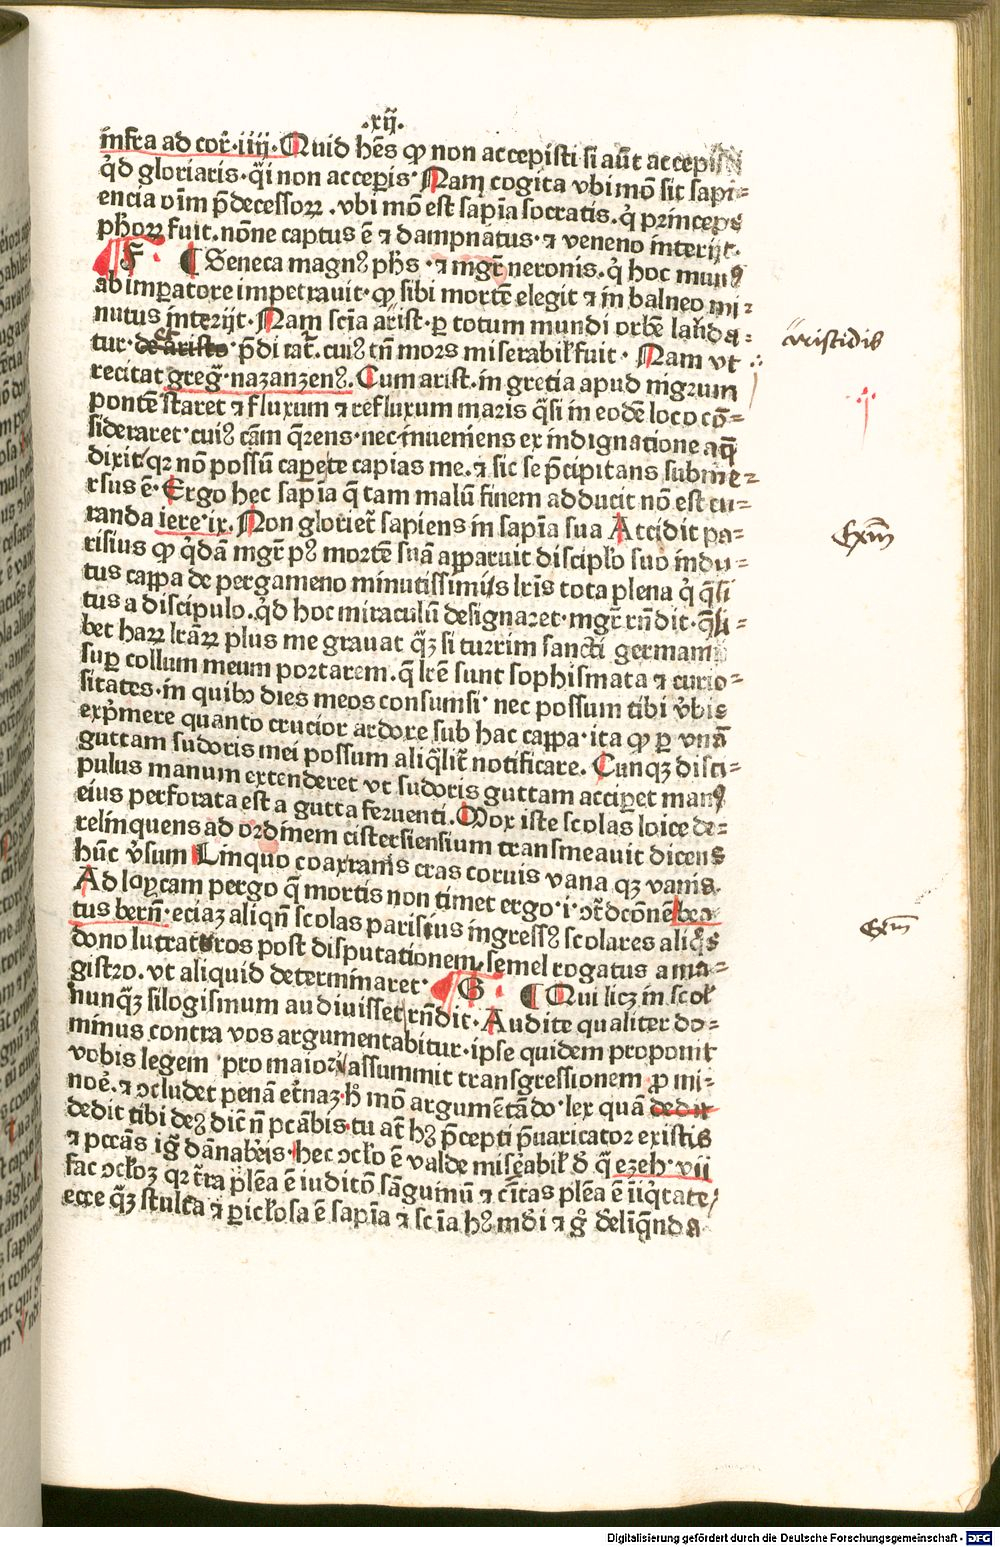 .xij.
infra ad cor̃·iiij·Quid hẽs ꝙ non accepisti si aũt accepisti
q̇d gloriaris·q̈i non acceꝑis· Nam cogita vbi mõ sit sapi=
encia oĩm p̃decessoꝝ .vbi mõ est sapĩa socratis.q̇ princeps
pħoꝝ fuit.nõne captus ẽ ⁊ dampnatus·⁊ veneno interijt·
F· ¶ Seneca magnꝰ pħs ·⁊ mgr̃ neronis.q̇ hoc munꝰ
ab imꝑatore impetrauit·ꝙ sibi mortẽ elegit ⁊ in balneo mi=
nutus interijt·Nam scĩa arist·ꝑ totum mundi orbẽ lauda=
tur· de aristo ·p̃dicat̃.cuiꝰ tñ mors miserabił fuit· Nam vt
recitat greg̃·nazanzenꝰ.Cum arist.in grecia apud mgrum
pontẽ staret ⁊ fluxum ⁊ refluxum maris q̃si in eodẽ loco cõ=
sideraret·cuiꝰ cãm q̃rens·nec inueniens ex indignatione aq̃
dixit/qꝛ nõ possũ capere te capias me.⁊ sic se p̃cipitans subme=
rsus ẽ·Ergo hec sapĩa q̃ tam malũ finem adducit nõ est cu=
randa iere·ix.Non gloriet̃ sapiens in sapĩa sua Accidit pa=
risius ꝙ q̇dã mgr̃ pꝰ mortẽ suã apparuit discipło suo indu=
tus cappa de pergameno minutissimis lr̃is tota plena q̇ q̃si
tus a discipulo.q̇d hoc miraculũ designaret·mgr̃ rñdit·q̃li=
bet haꝝ lr̃aꝝ plus me grauat qꝫ si turrim sancti germani
suꝑ collum meum portarem.q̃ lr̃e sunt sophismata ⁊ curio=
sitates·in quibꝰ dies meos consumsi· nec possum tibi v̓bis
exp̃mere quanto crucior ardore sub hac cappa·ita ꝙ ꝑ vnã
guttam sudoris mei possum aliq̃lit̃ notificare. Cunqꝫ disci=
pulus manum extenderet vt sudoris guttam acciꝑet manꝰ
eius perforata est a gutta feruenti.Mox iste scolas loice de=
relinquens ad ordinem cistersiensium transmeauit dicens
hũc v̓sum Linquo coax ranis cras coruis vana qꝫ vanis.
Ad loycam pergo q̃ mortis non timet ergo·i·ↄt̃dcõnẽ bea
tus berñ·eciaꝫ aliqñ scolas parisius ingressꝰ scolares aliq̇s
dono lutraturos post disputationem semel rogatus a ma=
gistro.vt aliquid determinaret· G ¶ Qui licꝫ in scoł
nunqꝫ silogismum audiuisset rñdit·Audite qualiter do=
minus contra vos argumentabitur·ipse quidem proponit
vobis legem pro maiori/assummit transgressionem ꝓ mi=
noẻ.⁊ ↄcludet penã et̃naꝫ·h̊ mõ argumẽtãdo·lex quã dedit
dedit tibi deꝰ dicñ ñ pcãbis·tu at̃ hꝰ p̃cepti p̃uaricator existis
⁊ pccãs ig̃ dãnab̃eris·hec ↄcło ẽ valde mis̓abił d̓ q̃ ezeħ·vij
fac ↄcłoꝫ qꝛ t̃ra plẽa ẽ iuditõ sãguinũ ⁊ cĩtas plẽa ẽ iniq̇tate/
ecce qꝫ stulta ⁊ ꝑicłosa ẽ sapĩa ⁊ scĩa hꝰ mďi ⁊ g̊ đeliq̃nda
aristidis
Exm̃
Exm̃